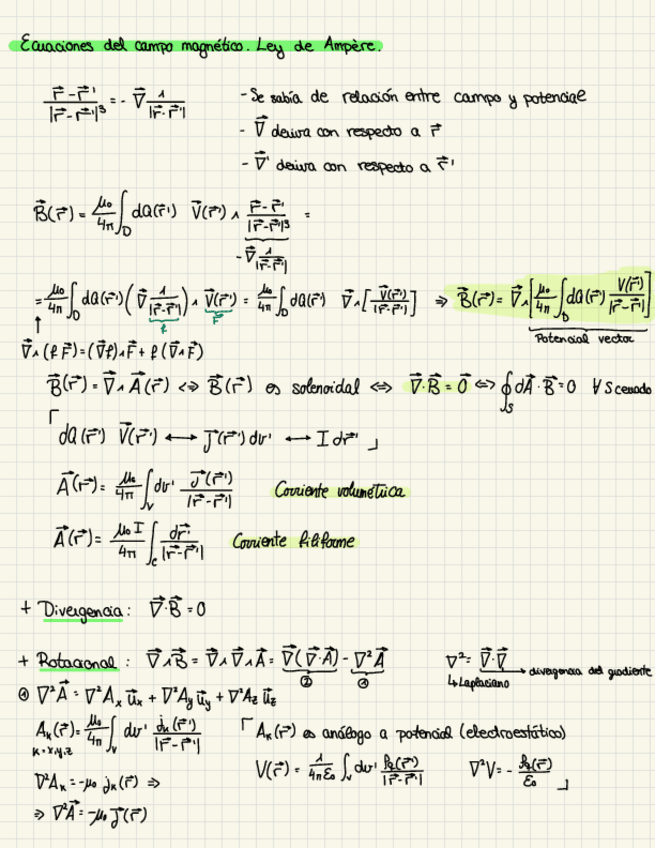 Ecuaciones del campo magnético. Ley de Ampère.
(r⃗ - r⃗')/|r⃗ - r⃗'|³ = - ∇⃗ 1/|r⃗ - r⃗'|
- Se sabía de relación entre campo y potencial
- ∇⃗ deriva con respecto a r⃗
- ∇⃗' deriva con respecto a r⃗'
B⃗(r⃗) = μ₀/4π ∫_D dQ(r⃗') V⃗(r⃗') ∧ (r⃗ - r⃗')/|r⃗ - r⃗'|³ =
-∇⃗ 1/|r⃗ - r⃗'|
= μ₀/4π ∫_D dQ(r⃗') (∇⃗ 1/|r⃗ - r⃗'|) ∧ V⃗(r⃗') = μ₀/4π ∫_D dQ(r⃗') ∇⃗ ∧ [V⃗(r⃗')/|r⃗ - r⃗'|] ⇒ B⃗(r⃗) = ∇⃗ ∧ [μ₀/4π ∫_D dQ(r⃗') V⃗(r⃗')/|r⃗ - r⃗'|]
f F⃗
↑ Potencial vector
∇⃗ ∧ (f F⃗) = (∇⃗f) ∧ F⃗ + f (∇⃗ ∧ F⃗)
B⃗(r⃗) = ∇⃗ ∧ A⃗(r⃗) ⇔ B⃗(r⃗) es solenoidal ⇔ ∇⃗·B⃗ = 0 ⇔ ∮_S dA⃗·B⃗ = 0 ∀ S cerrado
⌈ dQ(r⃗') V⃗(r⃗') ⟷ J⃗(r⃗') dv' ⟷ I dr⃗' ⌋
A⃗(r⃗) = μ₀/4π ∫_V dv' J⃗(r⃗')/|r⃗ - r⃗'| Corriente volumétrica
A⃗(r⃗) = μ₀ I/4π ∫_C dr⃗'/|r⃗ - r⃗'| Corriente filiforme
+ Divergencia: ∇⃗·B⃗ = 0
+ Rotacional: ∇⃗∧B⃗ = ∇⃗∧∇⃗∧A⃗ = ∇⃗(∇⃗·A⃗) - ∇²A⃗ ∇² = ∇⃗·∇⃗ → divergencia del gradiente
② ① ↳ Laplaciano
① ∇²A⃗ = ∇²Aₓ u⃗ₓ + ∇²A_y u⃗_y + ∇²A_z u⃗_z
A_k(r⃗) = μ₀/4π ∫_V dv' j_k(r⃗')/|r⃗ - r⃗'| ⌈ A_k(r⃗) es análogo a potencial (electroestático)
k = x,y,z
V(r⃗) = 1/4πε₀ ∫_V dv' ρ_q(r⃗')/|r⃗ - r⃗'| ∇²V = - ρ_q(r⃗)/ε₀ ⌋
∇²A_k = -μ₀ j_k(r⃗) ⇒
⇒ ∇²A⃗ = -μ₀ J⃗(r⃗)